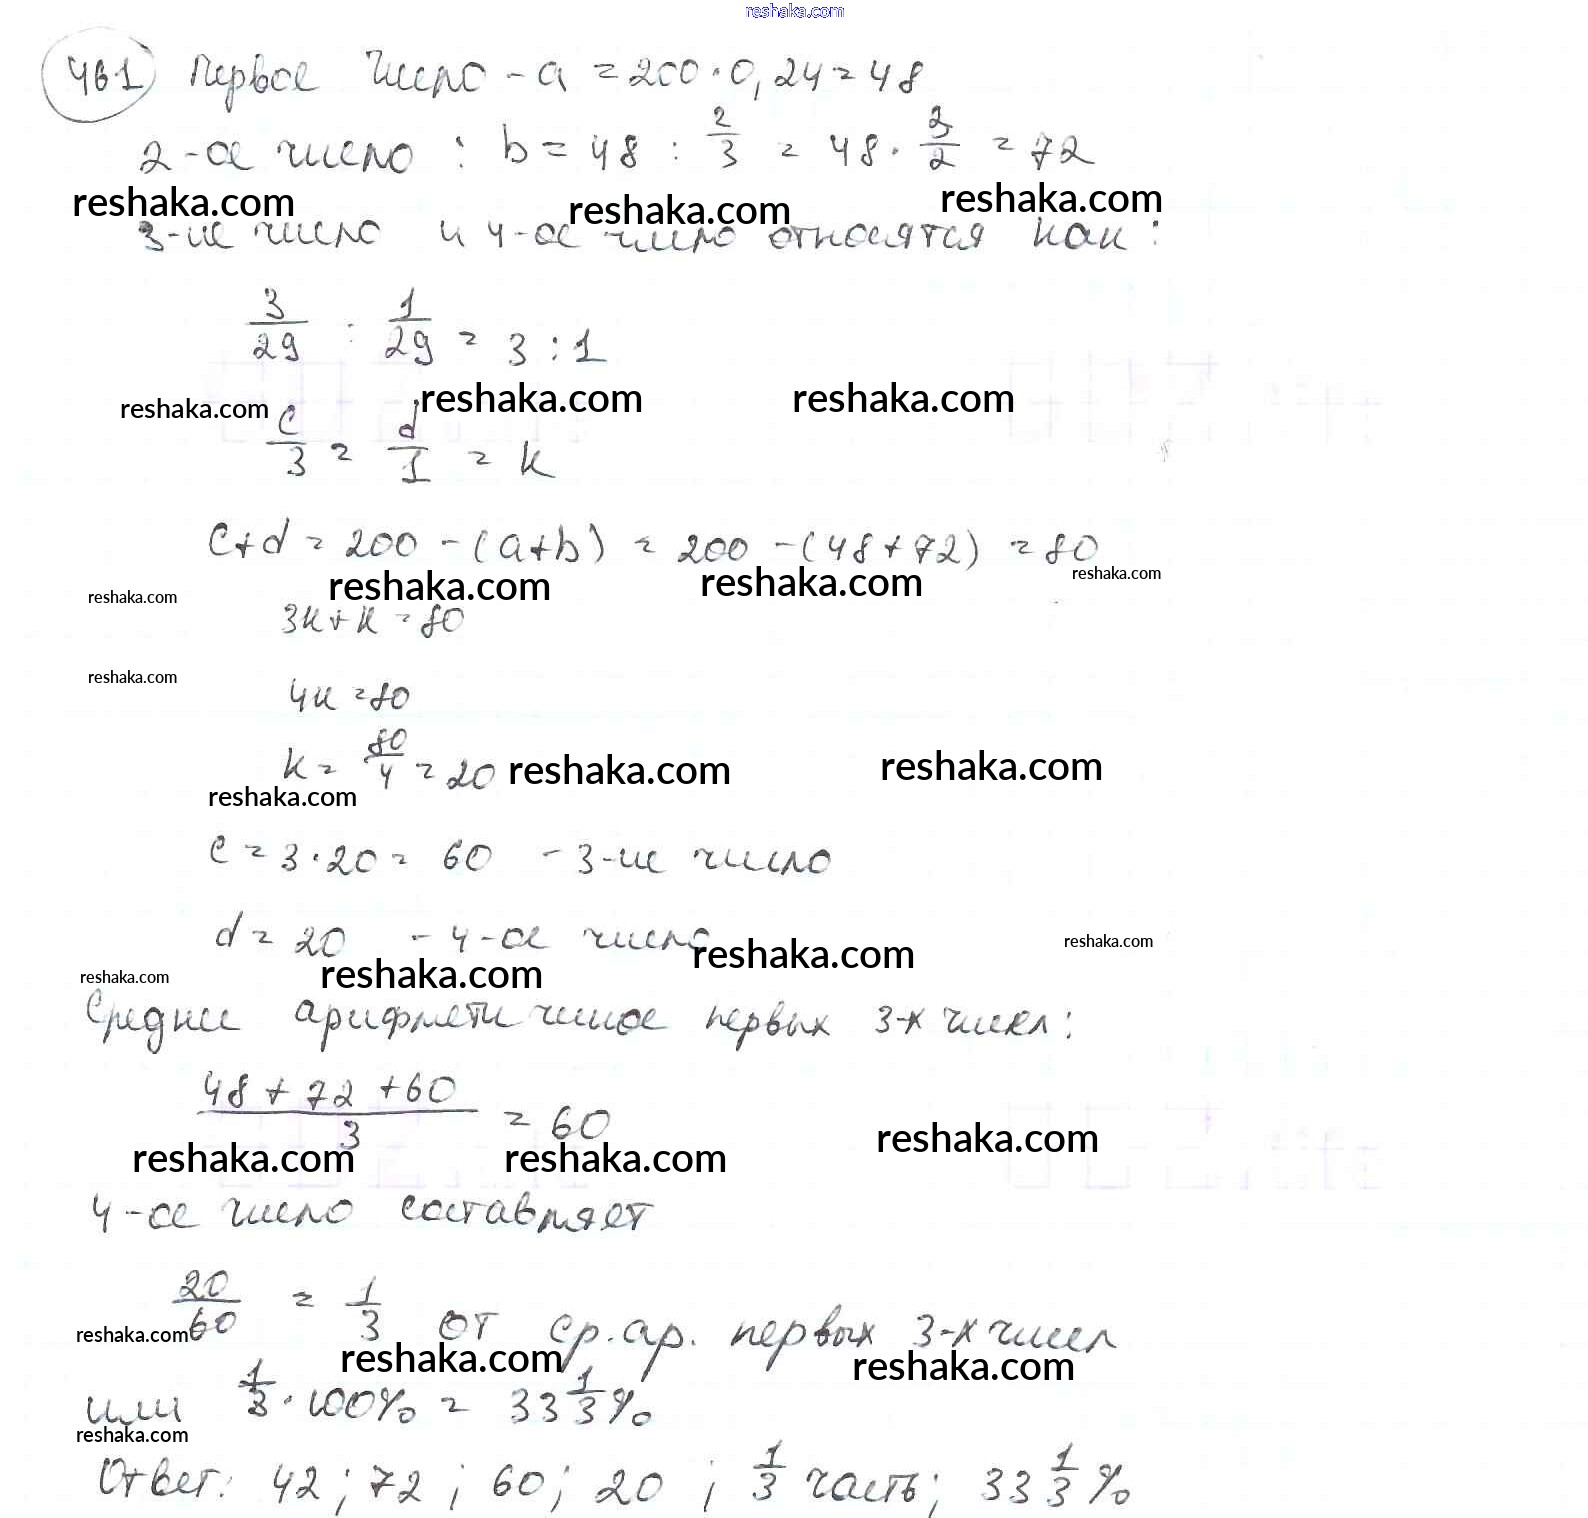 reshaka.com
461 Первое число - a = 200 · 0,24 = 48
2-ое число : b = 48 : 2/3 = 48 · 3/2 = 72
reshaka.com reshaka.com reshaka.com
3-ие число и 4-ое число относятся как :
3/29 : 1/29 = 3 : 1
reshaka.com reshaka.com reshaka.com
c/3 = d/1 = k
c+d = 200 - (a+b) = 200 - (48+72) = 80
reshaka.com reshaka.com reshaka.com reshaka.com
3k+k = 80
reshaka.com
4k = 80
k = 80/4 = 20 reshaka.com reshaka.com
reshaka.com
c = 3 · 20 = 60 - 3-ие число
d = 20 - 4-ое число
reshaka.com reshaka.com reshaka.com reshaka.com
Среднее арифметическое первых 3-х чисел:
(48 + 72 + 60)/3 = 60
reshaka.com reshaka.com reshaka.com
4-ое число составляет
20/60 = 1/3 от ср. ар. первых 3-х чисел
reshaka.com reshaka.com reshaka.com
или 1/3 · 100% = 33 1/3 %
reshaka.com
Ответ: 42 ; 72 ; 60 ; 20 ; 1/3 часть; 33 1/3 %